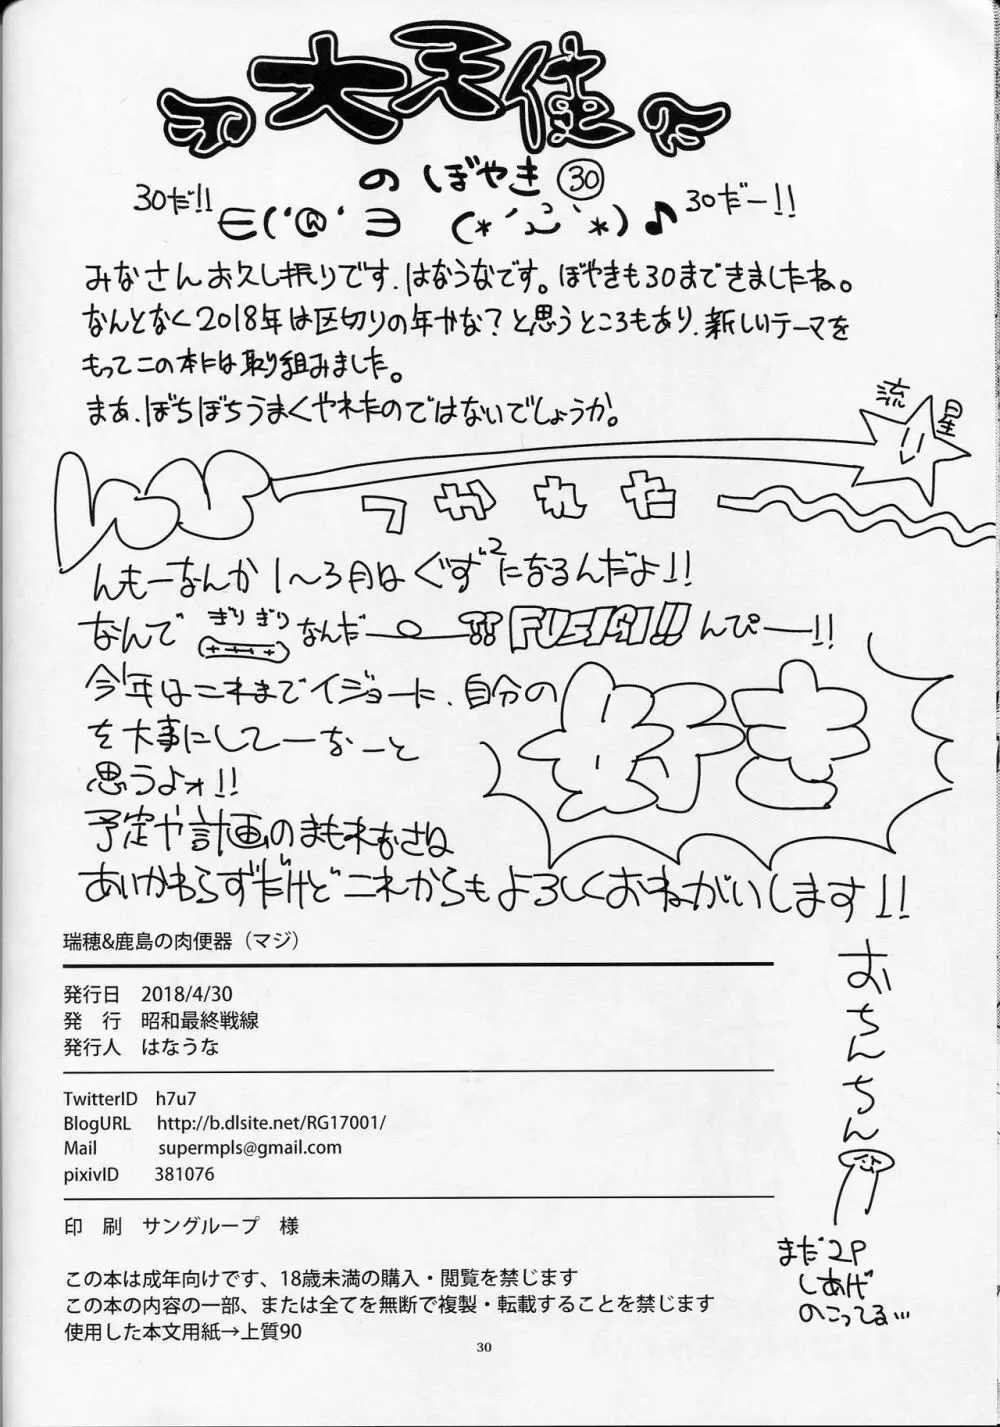 大天使
のぼやき㉚
30だ!! ∈('@'∋ (*´ω`*)♪ 30だー!!
みなさんお久し振りです.はなうなです。ぼやきも30まできましたね。
なんとなく2018年は区切りの年かな?と思うところもあり.新しいテーマを
もってこの本には取り組みました。
まあ.ぼちぼちうまくやれたのではないでしょうか。
流星
つかれた
んもーなんか1〜3月はぐず²になるんだよ!!
なんでぎりぎりなんだー!! FUSHA!! んぴー!!
今年はこれまでイジョーに.自分の
好き
を大事にしてーなーと
思うよォ!!
予定や計画のまもれなさね
あいかわらずだけどこれからもよろしくおねがいします!!
瑞穂&鹿島の肉便器(マジ)
発行日 2018/4/30
発 行 昭和最終戦線
発行人 はなうな
TwitterID h7u7
BlogURL http://b.dlsite.net/RG17001/
Mail supermpls@gmail.com
pixivID 381076
印 刷 サングループ 様
この本は成年向けです、18歳未満の購入・閲覧を禁じます
この本の内容の一部、または全てを無断で複製・転載することを禁じます
使用した本文用紙→上質90
おちんちん
まだ2P
しあげ
のこってる…
30